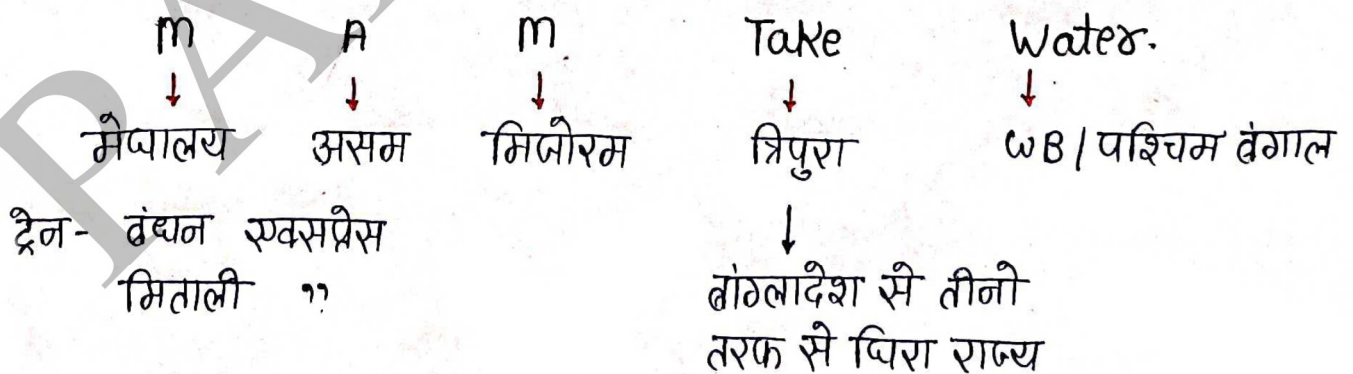 M A M Take Water.
↓ ↓ ↓ ↓ ↓
मेघालय असम मिजोरम त्रिपुरा WB / पश्चिम बंगाल
↓
ट्रेन - बंधन एक्सप्रेस
मिताली "
बांग्लादेश से तीनो
तरफ से घिरा राज्य